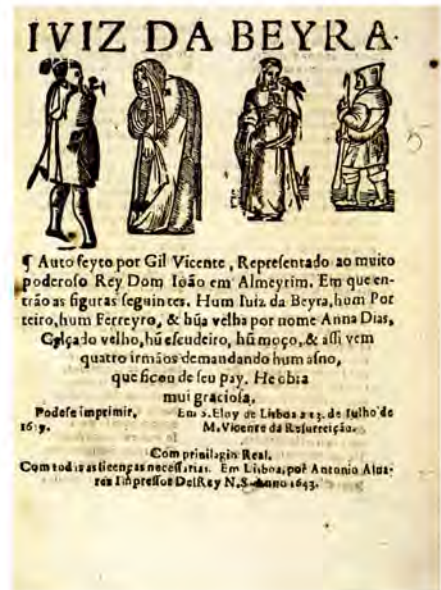 IVIZ DA BEYRA.
¶ Auto feyto por Gil Vicente, Reprefentado ao muito
poderofo Rey Dom Ioão em Almeyrim. Em que en-
trão as figuras feguintes. Hum Iuiz da Beyra, hum Por
teiro, hum Ferreyro, & hũa velha por nome Anna Dias,
Calçado velho, hũ efcudeiro, hũ moço, & affi vem
quatro irmãos demandando hum afno,
que ficou de feu pay. He obia
mui graciofa.
Podefe imprimir. Em S. Eloy de Lisboa a 13. de Iulho de
M. Vicente da Refurreição.
Com priuilegio Real.
Com todas as licenças neceffarias. Em Lisboa, por Antonio Alua-
res Impreffor DelRey N.S. Anno 1643.